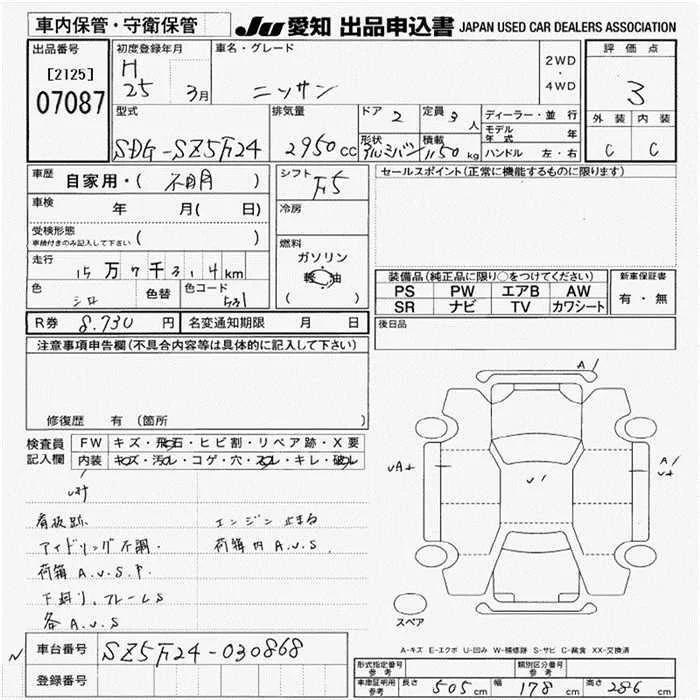 車内保管・守衛保管
JU 愛知 出品申込書 JAPAN USED CAR DEALERS ASSOCIATION
出品番号
[2125]
07087
初度登録年月
H 25 3月
車名・グレード
ニッサン
2WD
・
4WD
評価点
3
外装 内装
C C
型式
SDG-SZ5F24
排気量
2950cc
ドア 2
定員 3人
形状 アルミバン
積載 1150kg
ディーラー・並行
モデル年式 年
ハンドル 左・右
車歴
自家用・( 不明 )
車検
年 月( 日)
受検形態
車検付きのみ記入して下さい ( )
シフト F5
冷房
燃料
ガソリン
軽油
( )
セールスポイント(正常に機能するものに限ります)
走行
15万7千314km
色 シロ
色替
色コード 531
装備品(純正品に限り○をつけてください)
PS PW エアB AW
SR ナビ TV カワシート
新車保証書
有・無
R券 8.730円
名変通知期限 月 日
後日品
注意事項申告欄(不具合内容等は具体的に記入して下さい)
修復歴 有(箇所 )
検査員記入欄
FW キズ・飛石・ヒビ割・リペア跡・X要
内装 キズ・汚れ・コゲ・穴・スレ・キレ・破れ
看板跡
アイドリング不調.
荷箱 A.U.S.P.
下廻り,フレームS
各 A.U.S
エンジン止まる
荷箱内 A.U.S.
A/
UA+
U/
A/
U+
スペア
A-キズ E-エクボ U-凹み W-補修跡 S-サビ C-腐食 XX-交換済
N
車台番号 SZ5F24-030868
登録番号
形式指定番号 参考
類別区分番号 参考
車庫証明用 参考
長さ 505cm 幅 178cm 高さ 286cm